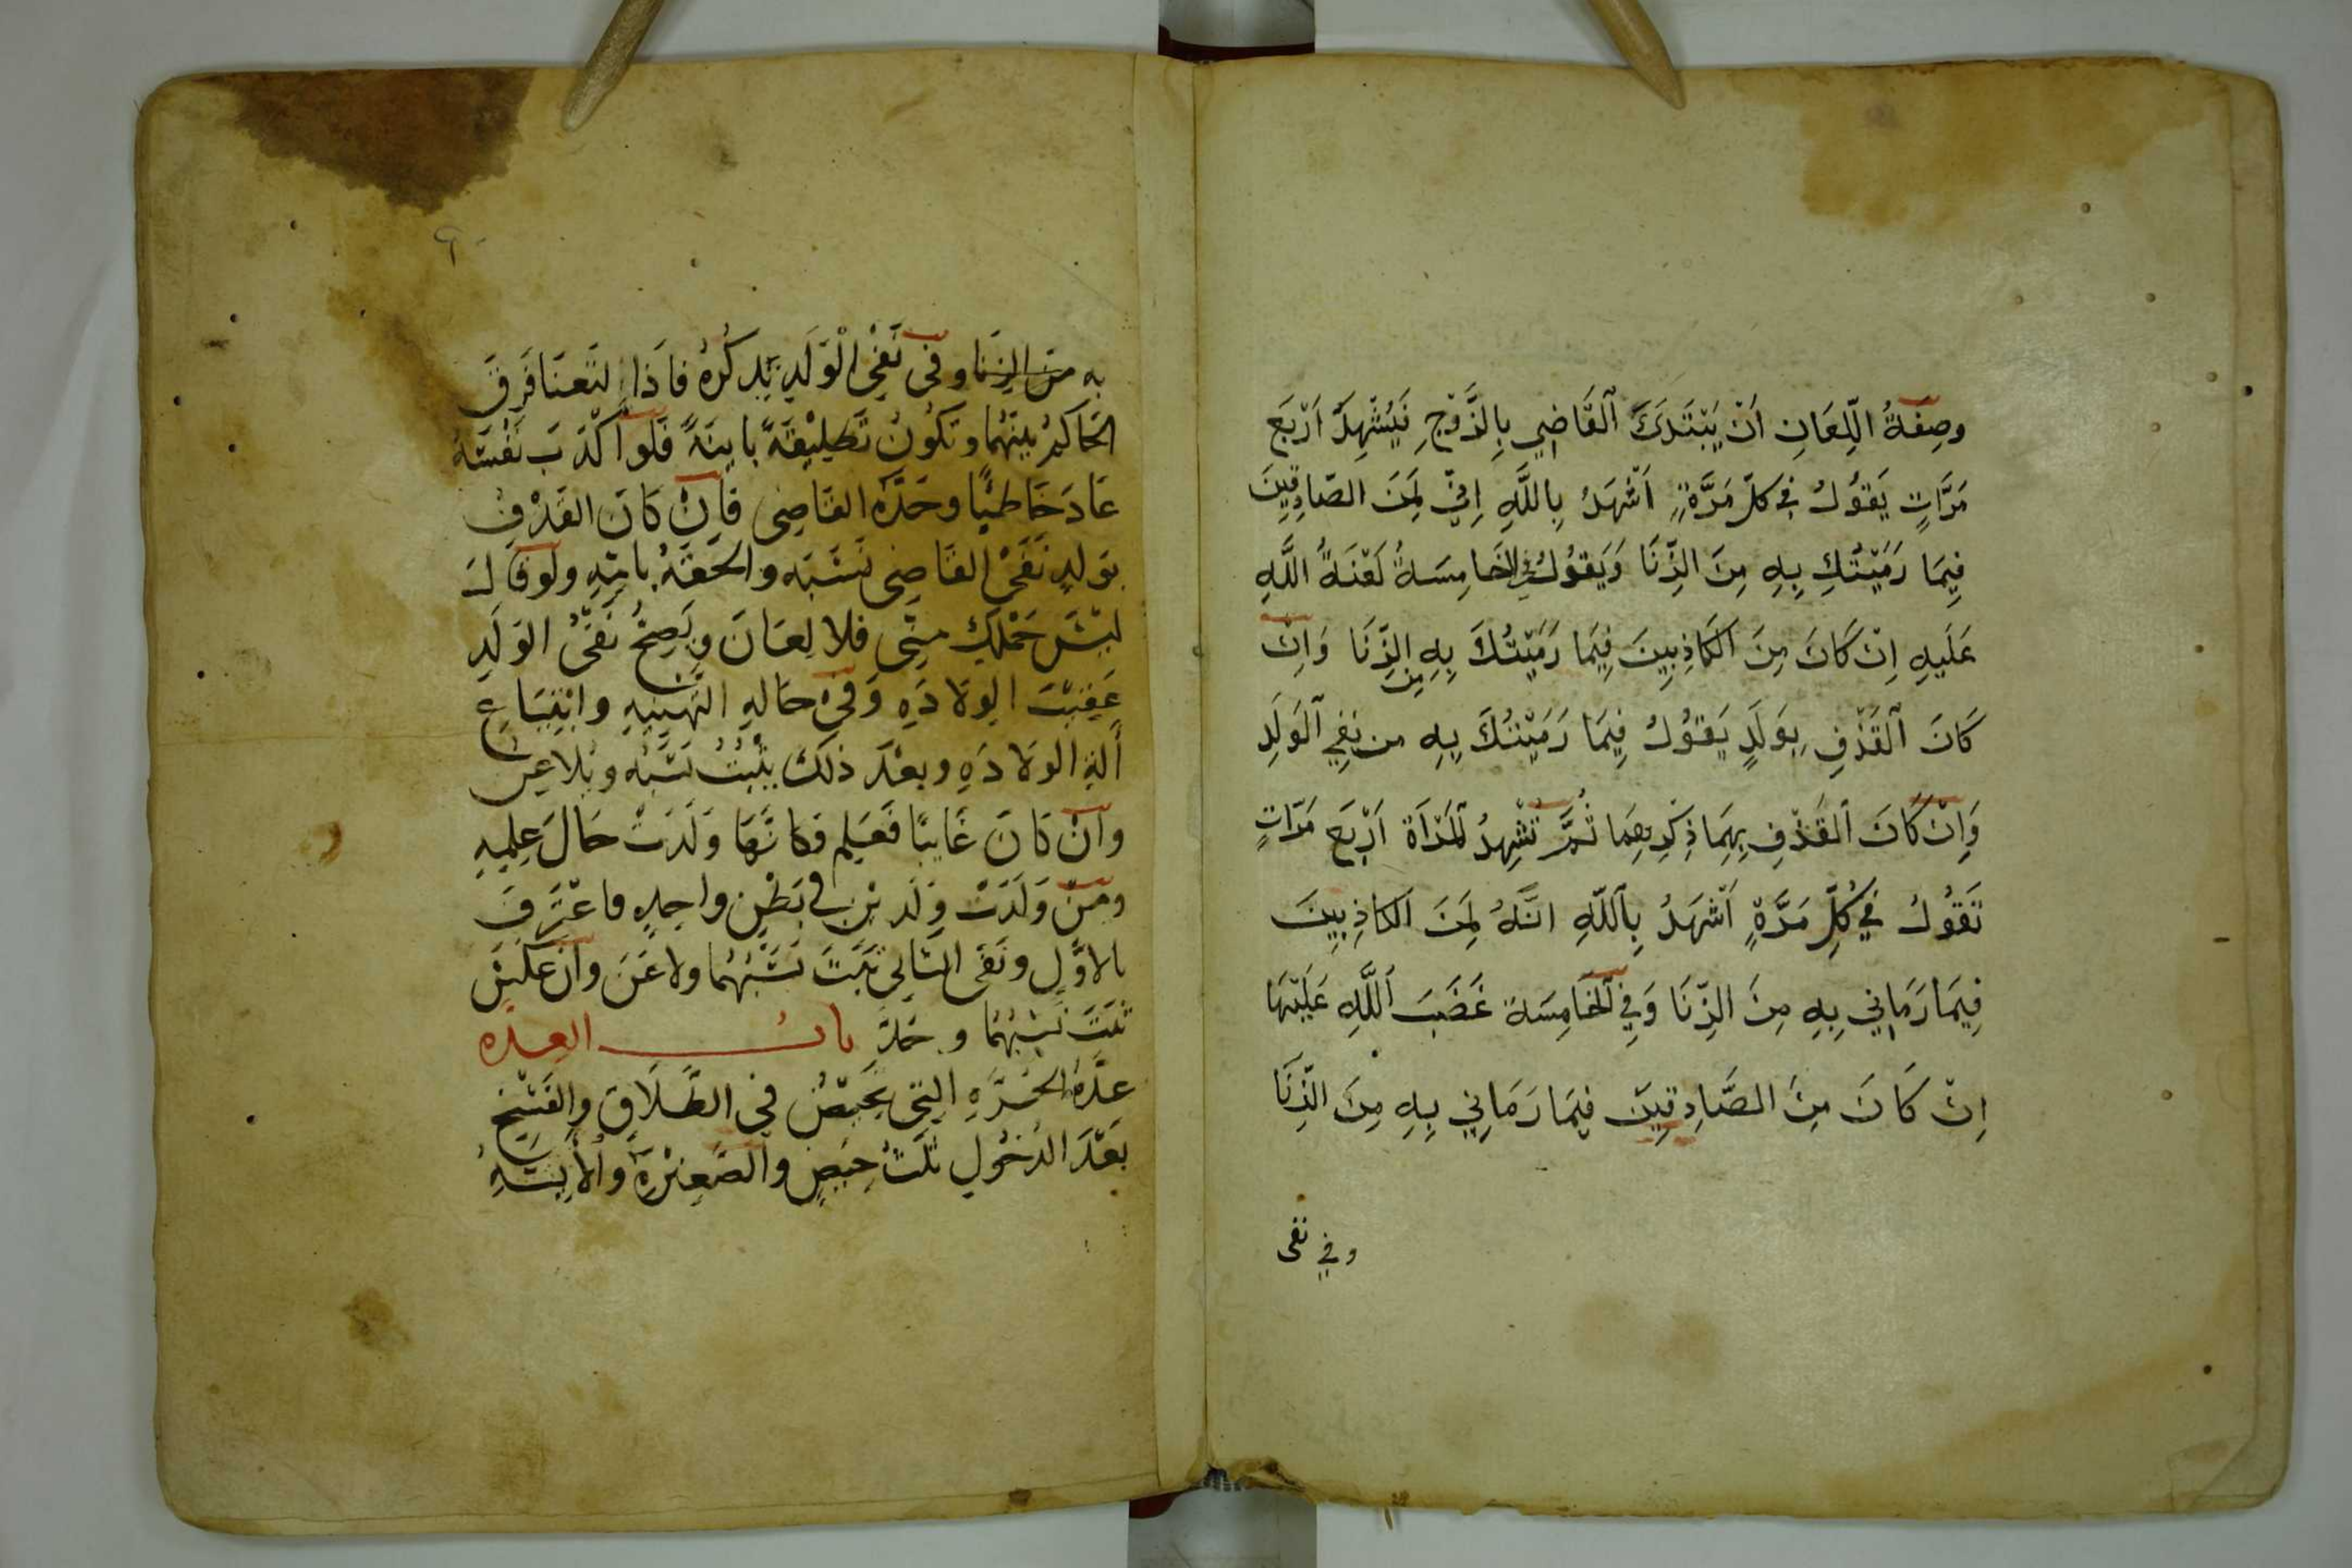 وصِفَةُ اللِّعَانِ اَنْ يَبْتَدِئَ اَلقَاضِي بِالزَّوْجِ فَيُشْهِدُ اَرْبَعَ
مَرَّاتٍ يَقُولُ فِي كلِّ مَرَّةٍ اَشْهَدُ بِاللَّهِ اِنِّي لَمِنَ الصَّادِقِينَ
فِيمَا رَمَيْتُكِ بِهِ مِنَ الزِّنَا وَيَقُولُ فِي الخَامِسَةِ لَعْنَةُ اللَّهِ
عَلَيهِ اِنْ كَانَ مِنَ الكَاذِبِينَ فِيمَا رَمَيْتُكَ بِهِ مِن الزِّنَا وَاِنْ
كَانَ اَلقَذْفِ بِوَلَدٍ يَقُولُ فِيمَا رَمَيْتُكَ بِهِ من نَفِي اَلوَلَدِ
وَاِنْ كَانَ اَلقَذْفِ بِهِمَا ذِكْرِهِمَا ثُمَّ تُشْهِدُ اَلمَرْاَة اَرْبَعَ مَرَّاتٍ
تَقُولُ فِي كُلِّ مَرَّةٍ اَشْهَدُ بِاَللَّهِ انَّهُ لَمِنَ الكاذِبِينَ
فِيمَا رَمَانِي بِهِ مِنَ الزِّنَا وَفِي اَلخَامِسَة غَضَبَ اَللَّهِ عَلَيْهَا
اِنْ كَانَ مِنَ الصَّادِقِينَ فِيمَا رَمَانِي بِهِ مِنَ الزِّنَا
وفي نفى
٩٠
به مِنَ الزِنَا وفي نَفْيِ الْوَلَدِ يَذكُرُهُ فاذَا اِلتَعنَا فَرقَ
الحَاكمُ بينَهُمَا وتكُونُ تَطلِيْقَةً باينَةً فَلَو اَكْذَبَ نَفْسَهُ
عَادَ خَاطبًا وحَدَّه القَاضِى فاِنْ كَانَ القَذْفُ
بوَلدٍ نَفَى القَاضِى نَسَبَه والحَقَهُ بامِّهِ ولَو قالَ
ليْسَ حَمْلكِ مِنِّى فلا لِعَانَ ويَصِحُّ نَفْىُ الوَلَدِ
عَقِيْبَ الوِلادَهِ وَفي حَالهِ التَهنِيهِ وابْتِيَاعِ
اَلَةِ الولادَهِ وبعْدَ ذلكَ يثْبُتُ نَسَبُه ويُلاعِن
وانْ كانَ غَايبًا فَعَلِم فكانَّهَا وَلَدَتْ حَالَ عِلمِهِ
ومَنْ وَلَدَتْ وَلَدَيْنِ في بَطْنٍ واحِدٍ فاعْتَرَفَ
بالاوَّلِ ونَفَى الثَانِى ثَبَتَ نَسَبُهُمَا ولاعَنَ وانْ عَكسَ
ثبَتَ نَسَبُهُمَا وحُدَّ بابُ العِدَّه
عدَّةُ الحُرَّهِ التِى تحِيضُ في الطَّلاَقِ والفَسْخِ
بَعْدَ الدُخُولِ ثلَثُ حِيَضٍ والصَّغِيْرَةِ والاَيِسَهِ